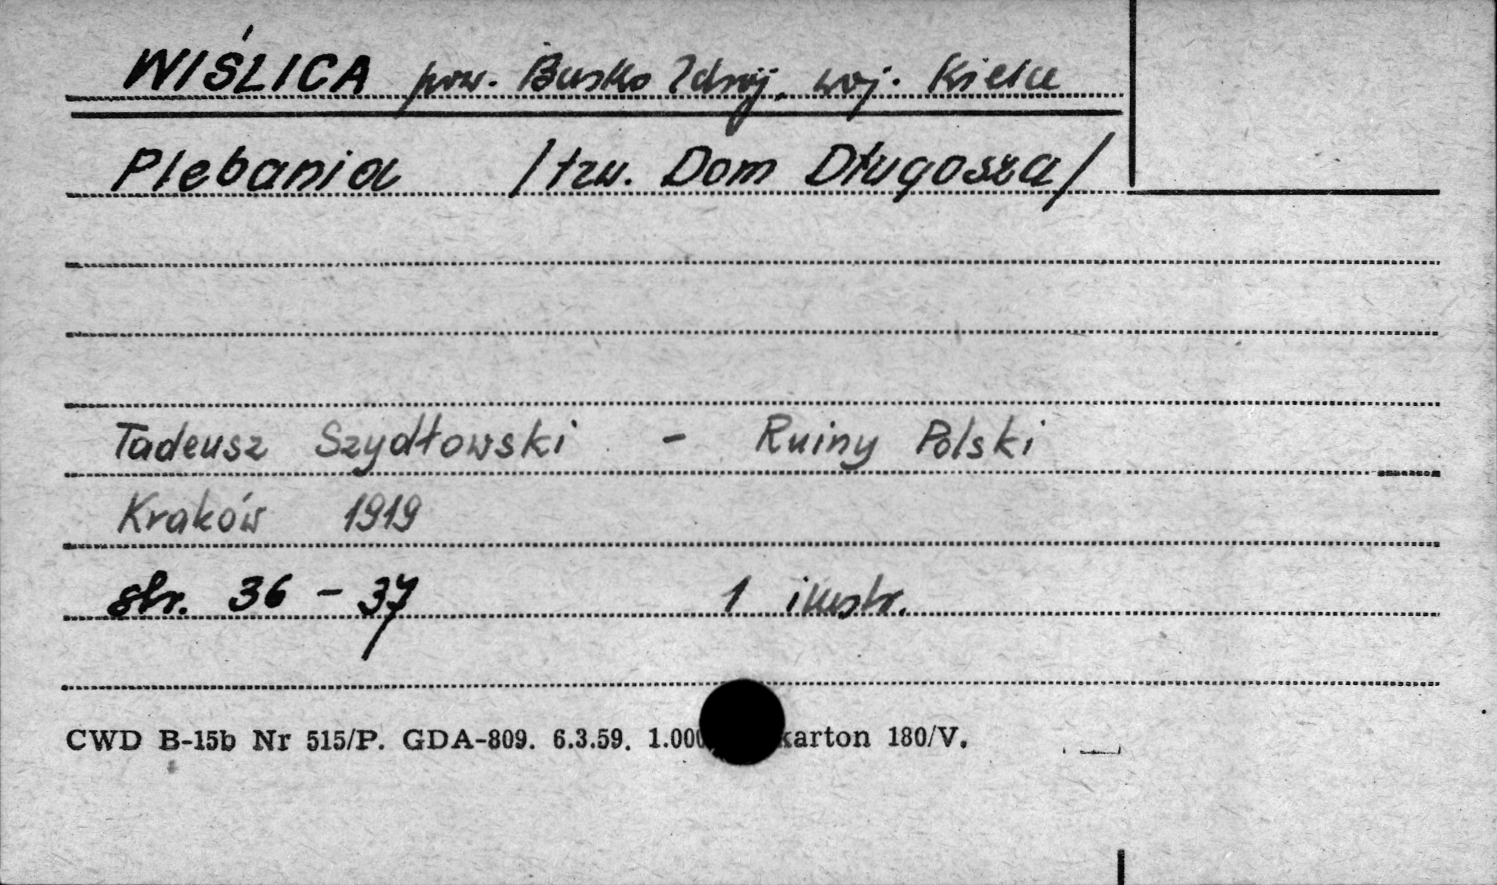 WIŚLICA pow. Busko Zdrój, woj. Kielce
Plebania /tzw. Dom Długosza/
Tadeusz Szydłowski - Ruiny Polski
Kraków 1919
str. 36 - 37 1 ilustr.
CWD B-15b Nr 515/P. GDA-809. 6.3.59. 1.000 karton 180/V.